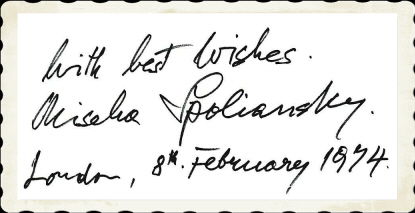 With best Wishes.
Mischa Spoliansky.
London, 8th. February 1974.